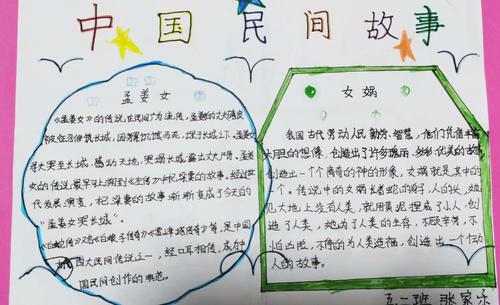 中国民间故事
孟姜女
《孟姜女》的传说,在民间广为流传,孟姜女的丈夫
被征召修筑长城,因劳累饥饿而死,埋于长城下,孟姜女
寻夫哭至长城,感动天地,哭塌长城,露出丈夫尸骨。孟姜
女的传说,最早可上溯到《左传》中杞梁妻的故事,经过世
代发展,演变,杞梁妻的故事渐渐变成了今天的
“孟姜女哭长城”。
《白蛇传》又名《白娘子传奇》《雷峰塔传奇》等,是中国
四大民间传说之一,经口耳相传,成为中
国民间创作的典范。
女娲
我国古代劳动人民勤劳、智慧,他们凭借丰富
大胆的想像,创造出了许多瑰丽、多彩、优美的故事
创造出一个个高尚的神的形象,女娲就是其中的一
个。传说中的女娲长着蛇的身子,人的头,她
见大地上没有人类,就用黄泥捏成了小人,创
造了人类,她为了人类的生存,不顾辛劳,不
怕凶险,不停的为人类造福,创造出一个个动
人的故事。
五一班 张家